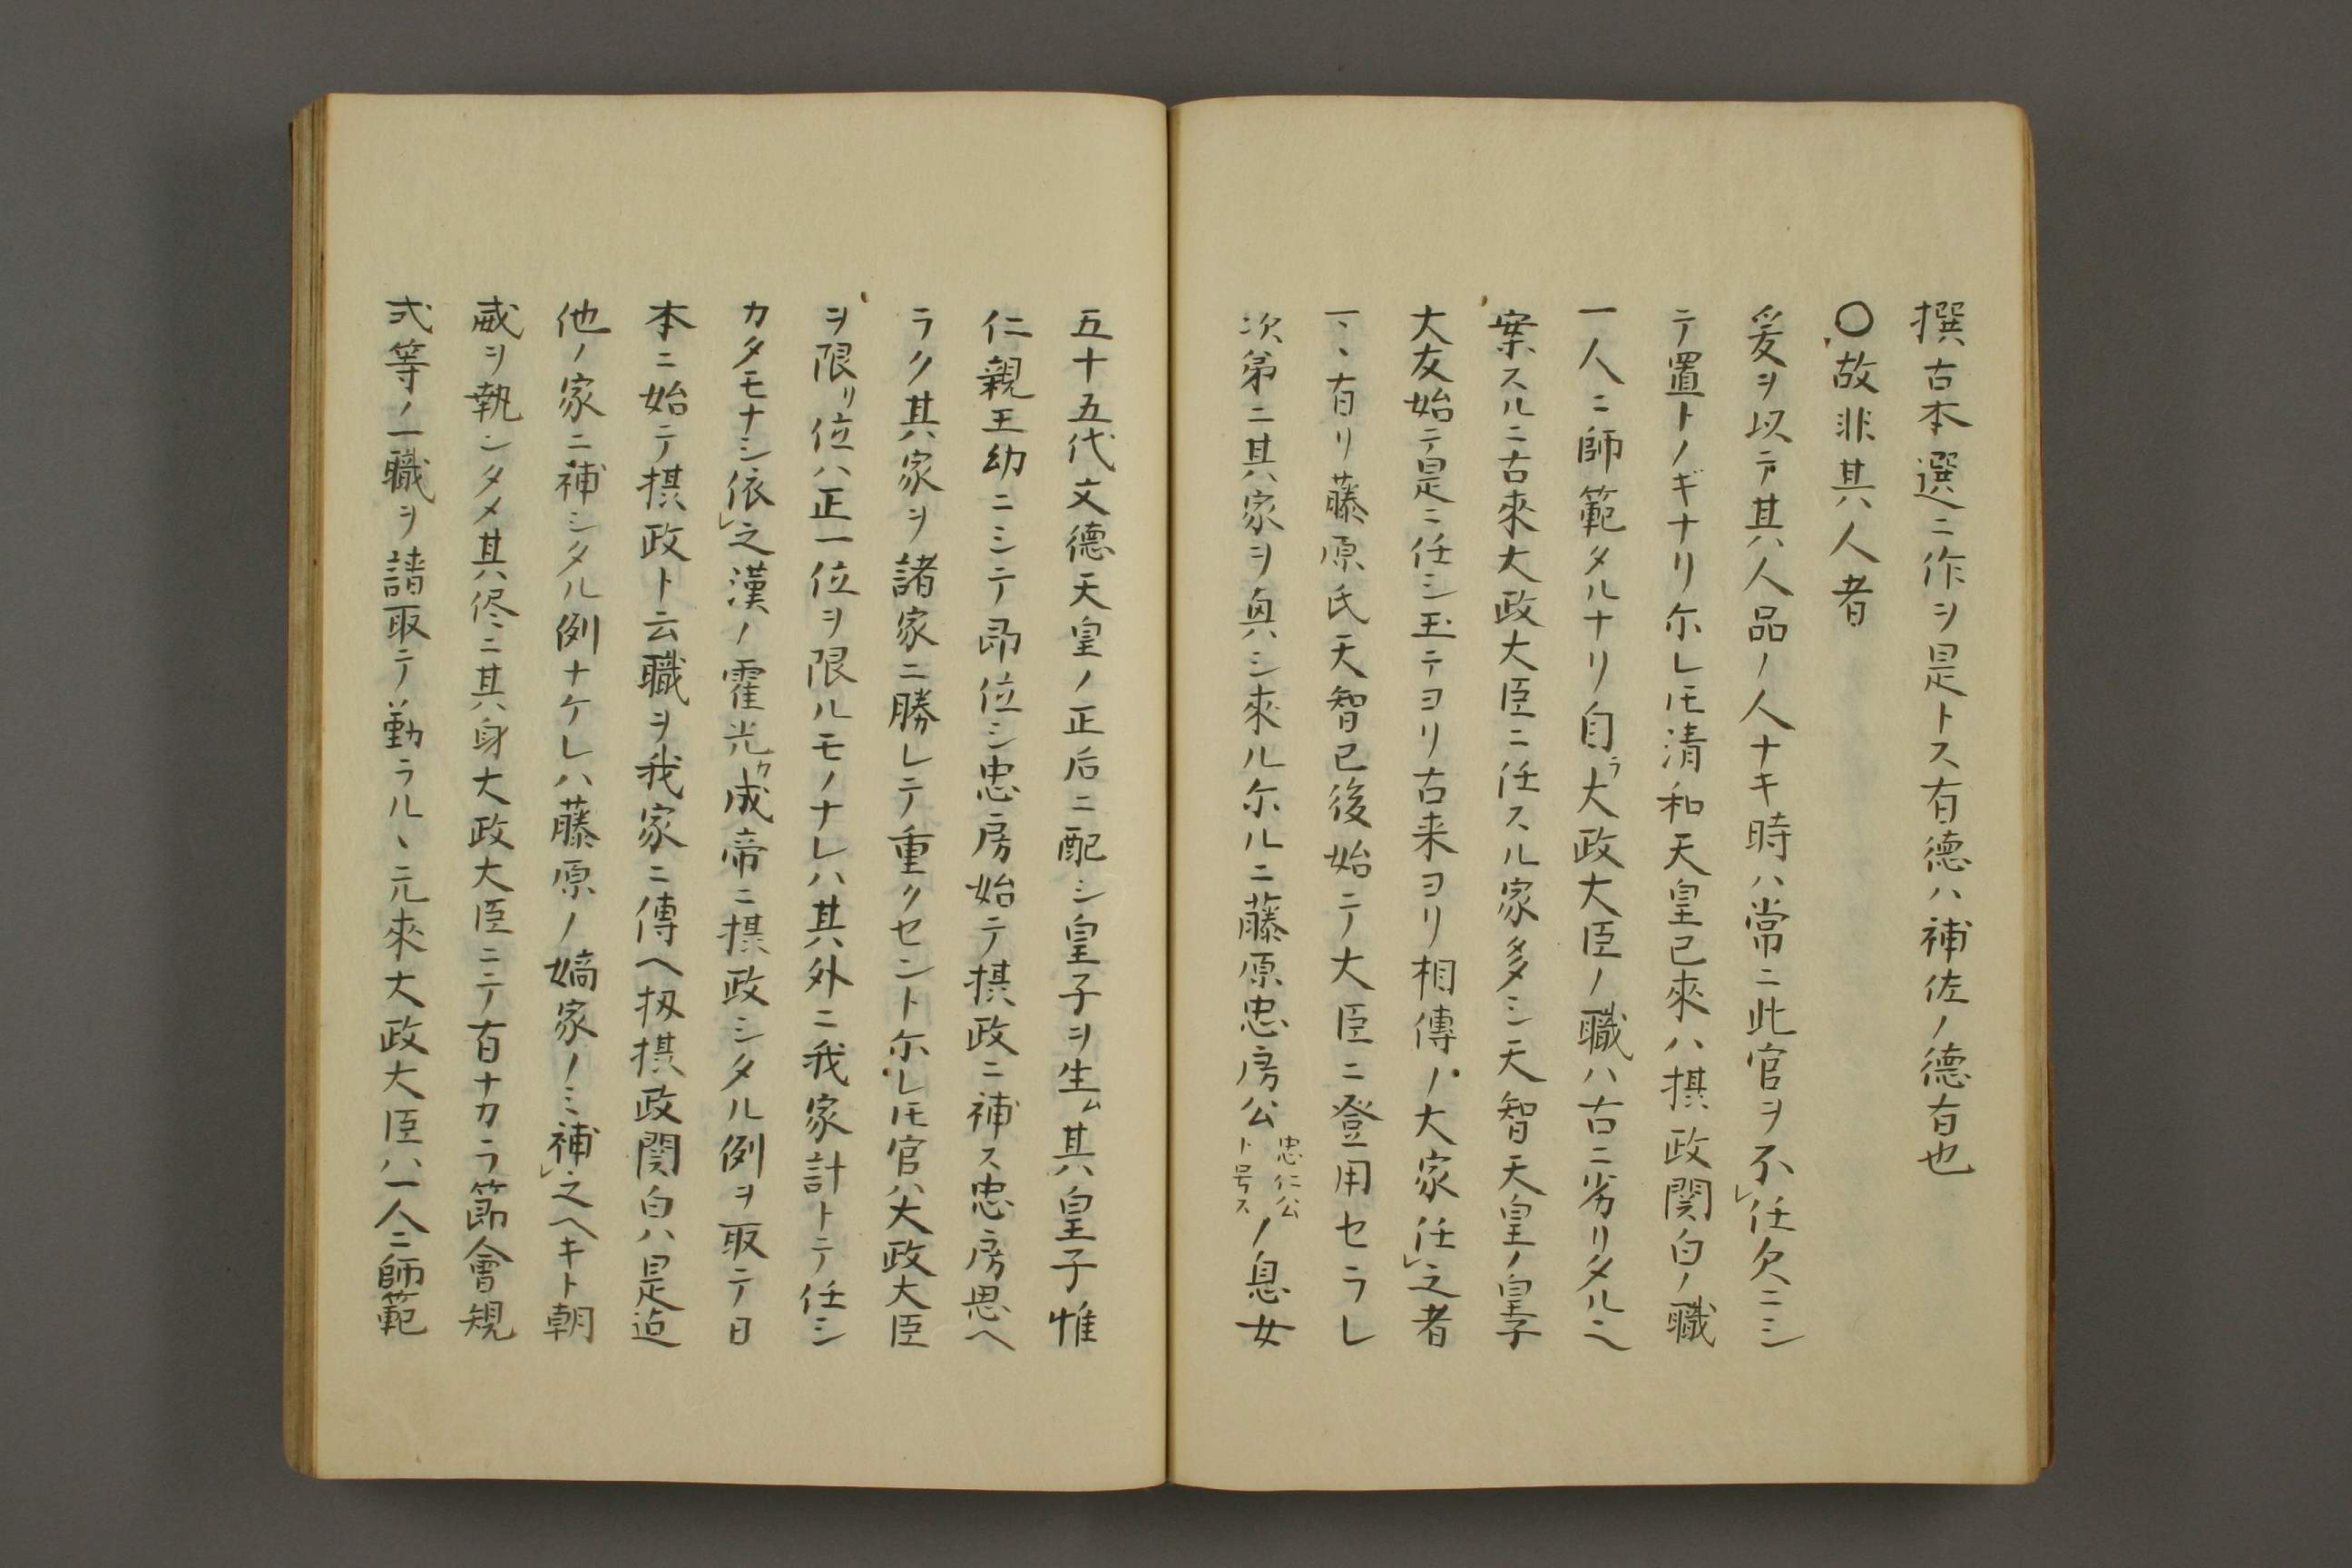 撰古本選ニ作ヲ是トス有德ハ補佐ノ德有也
〇故非其人者
爰ヲ以テ其人品ノ人ナキ時ハ常ニ此官ヲ不レ任欠ニシ
テ置トノギナリ尓レ𪜈清和天皇已來ハ摂政関白ノ職
一人ニ師範タルナリ自ラ大政大臣ノ職ハ古ニ劣リタルヘ
案スルニ古來大政大臣ニ任スル家多シ天智天皇ノ皇子
大友始テ是ニ任シ玉テヨリ古来ヨリ相傳ノ大家任レ之者
一ヽ有リ藤原氏天智已後始ニテ大臣ニ登用セラレ
次第ニ其家ヲ奥シ來ル尓ルニ藤原忠房公忠仁公ト号スノ息女
五十五代文德天皇ノ正后ニ配シ皇子ヲ生ム其皇子惟
仁親王幼ニシテ即位シ忠房始テ摂政ニ補ス忠房思ヘ
ラク其家ヲ諸家ニ勝レテ重クセント尓レ𪜈官ハ大政大臣
ヲ限リ位ハ正一位ヲ限ルモノナレハ其外ニ我家計トテ任シ
カタモナシ依レ之漢ノ霍光カ成帝ニ摂政シタル例ヲ取テ日
本ニ始テ摂政ト云職ヲ我家ニ傳ヘ扨摂政関白ハ是迠
他ノ家ニ補シタル例ナケレハ藤原ノ嫡家ノミ補レ之ヘキト朝
威ヲ執ンタメ其侭ニ其身大政大臣ニテ有ナカラ節會規
式等ノ一職ヲ請取テ勤ラルヽ元來大政大臣ハ一人ニ師範